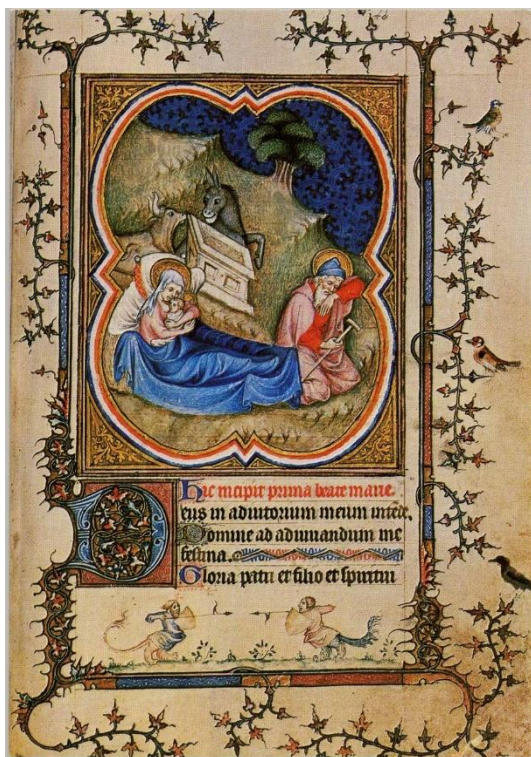 Hic incipit prima beate marie
eus in adiutorium meum intēde.
Domine ad adiuuandum me
festina.
Gloria patri et filio et spiritui